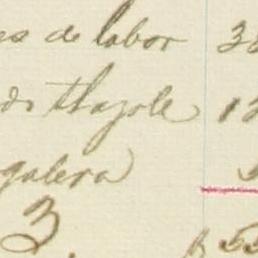 es de labor 3
de tlazole 12
galera
3.
$ 55